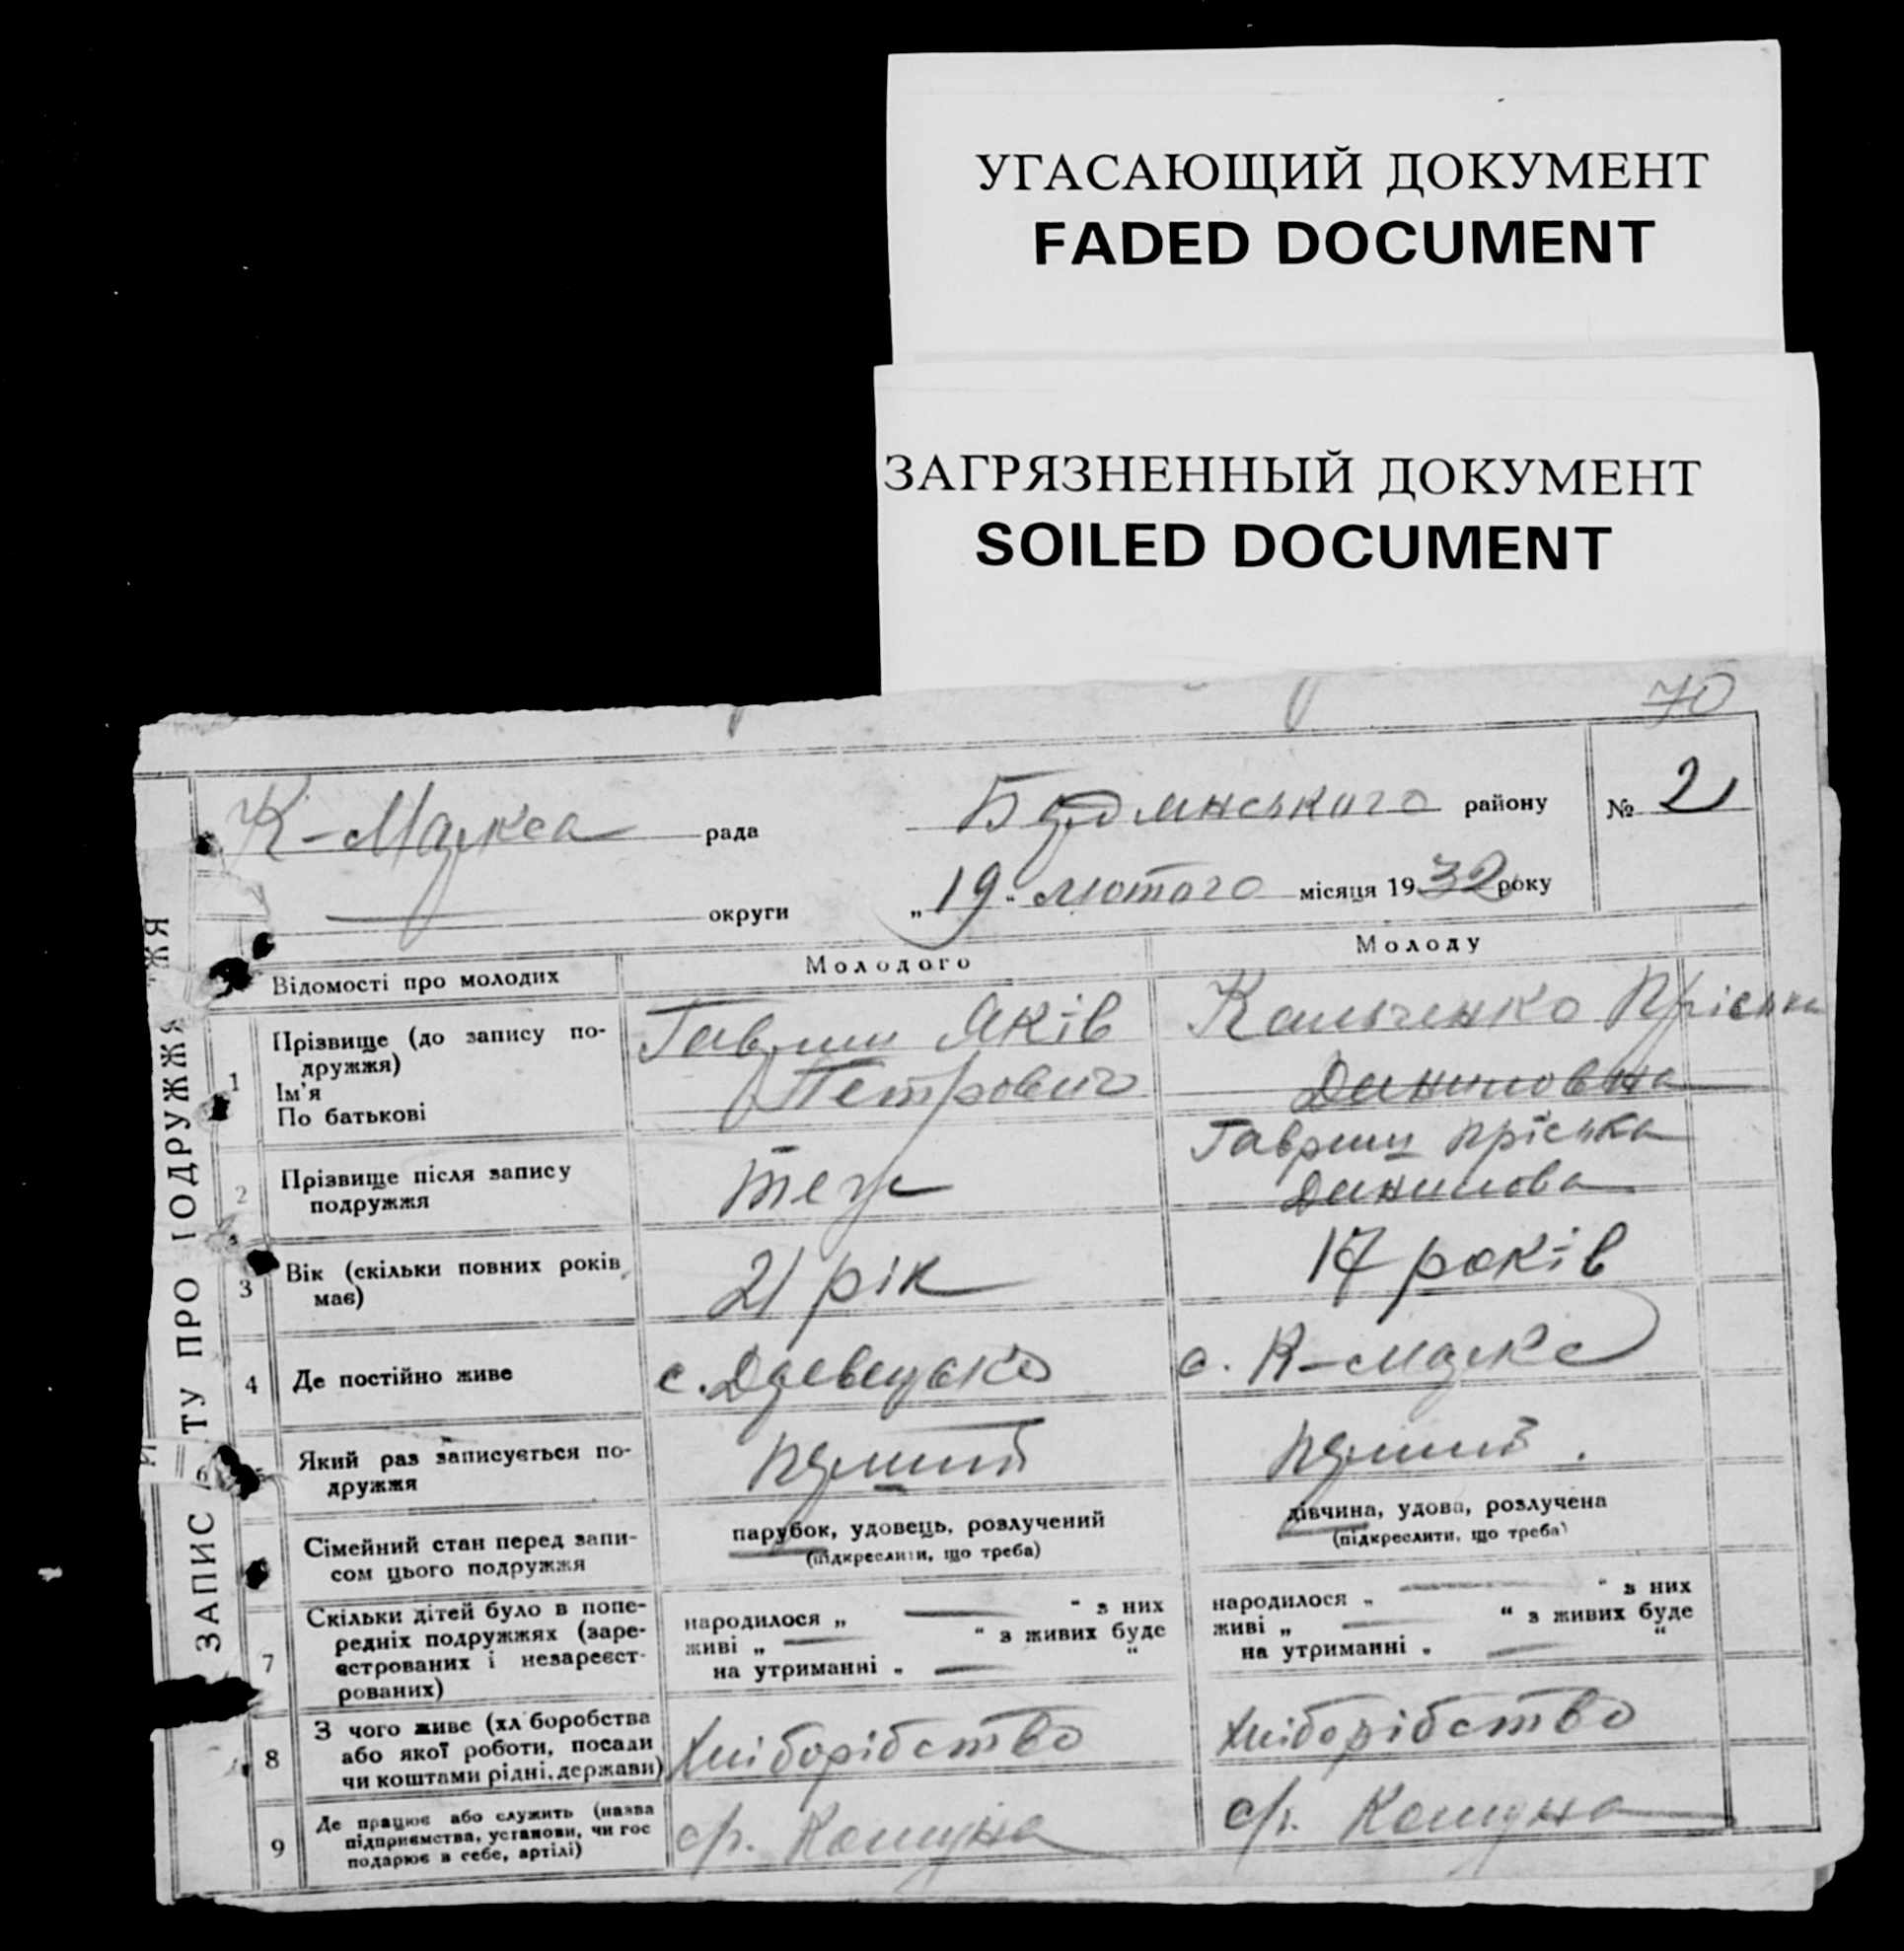 УГАСАЮЩИЙ ДОКУМЕНТ
FADED DOCUMENT
ЗАГРЯЗНЕННЫЙ ДОКУМЕНТ
SOILED DOCUMENT
70
К-Маркса рада
района району
№ 2
округи
„19“ лютого місяця 1932 року
ЗАПИС ТУ ПРО ПОДРУЖЖЯ
Відомості про молодих
Молодого
Молоду
1
Прізвище (до запису по-
дружжя)
Ім'я
По батькові
Гавриш Яків
Петрович
Кальченко Пріська
Даниловна
2
Прізвище після запису
подружжя
теж
Гавриш Пріська
Данилова
3
Вік (скільки повних років
має)
21 рік
17 років
4
Де постійно живе
с.
с. К-Маркс
Який раз записується по-
дружжя
перший
перший.
Сімейний стан перед запи-
сом цього подружжя
парубок, удовець, розлучений
(підкреслити, що треба)
дівчина, удова, розлучена
(підкреслити, що треба)
7
Скільки дітей було в попе-
редніх подружжях (заре-
єстрованих і незареєст-
рованих)
народилося „ “ з них
живі „ “ з живих буде
на утриманні „ “
народилося „ “ з них
живі „ “ з живих буде
на утриманні „ “
8
З чого живе (хл боробства
або якої роботи, посади
чи коштами рідні, держави)
Хліборібство
Хліборібство
9
Де працює або служить (назва
підприємства, установи, чи гос
подарює в себе, артілі)
с/г. Комуна
с/г. Комуна